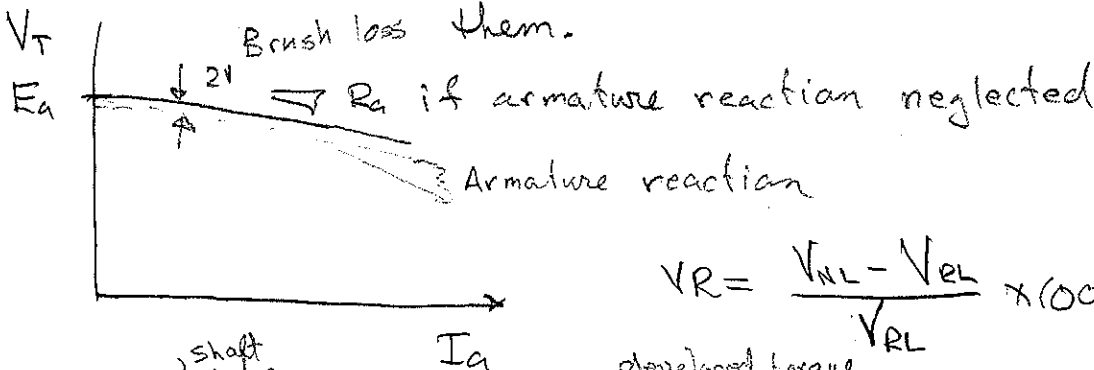 V_T
Brush loss them.
2V
E_a R_a if armature reaction neglected
Armature reaction
VR = \frac{V_{NL} - V_{RL}}{V_{RL}} × 100
shaft I_a developed torque